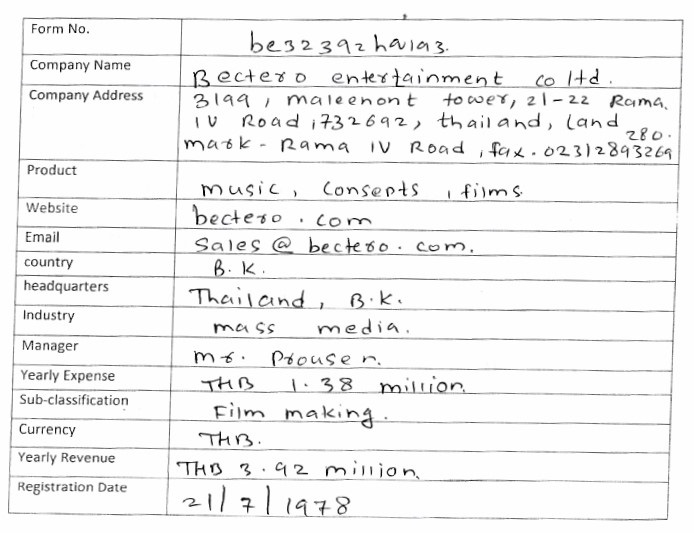 Form No.
be32392hala3.
Company Name
Bectero entertainment co ltd.
Company Address
3199, maleenont tower, 21-22 Rama.
IV Road, 732692, thailand, land
280.
mark - Rama IV Road, fax. 02312893269
Product
music, Consepts, films
Website
bectero.com
Email
Sales@bectero.com.
country
B.K.
headquarters
Thailand, B.K.
Industry
mass media.
Manager
mr. Prousen.
Yearly Expense
THB 1.38 million.
Sub-classification
Film making.
Currency
THB.
Yearly Revenue
THB 3.92 million.
Registration Date
21/7/1978